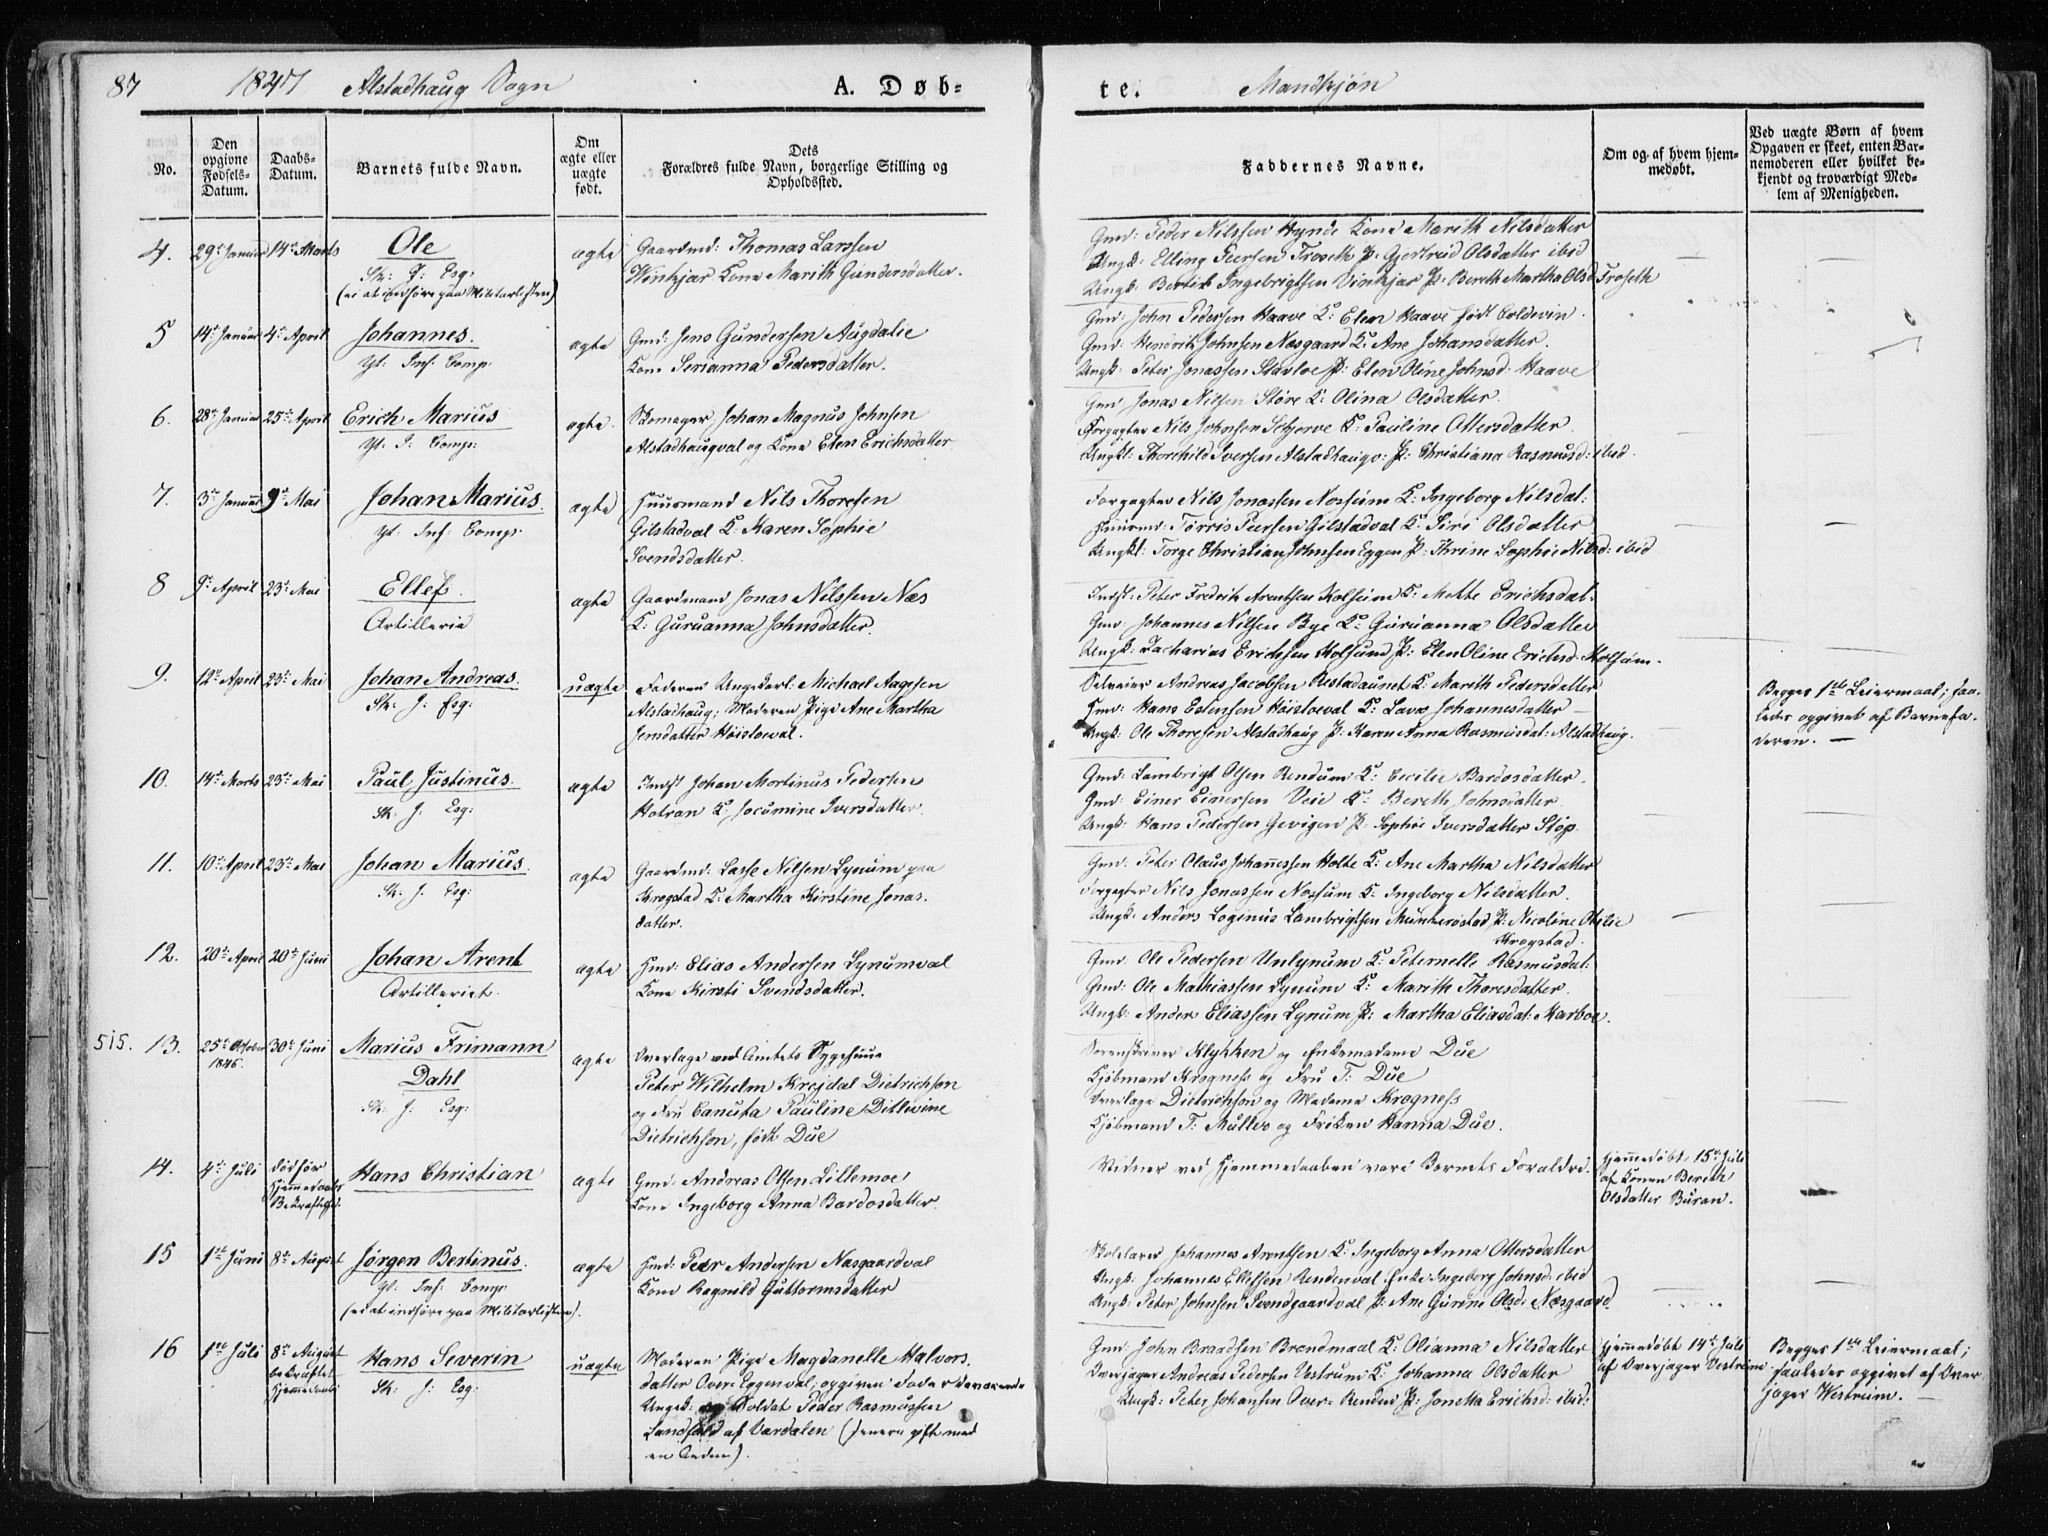 87 1847 Alstadhaug Sogn A. Døb-
te. Mandkjøn
No.
Den opgivne Fødsels-Datum.
Daabs-Datum.
Barnets fulde Navn.
Om ægte eller uægte født.
Dets Forældres fulde Navn, borgerlige Stilling og Opholdssted.
Faddernes Navne.
Om og af hvem hjemmedøbt.
Ved uægte Børn af hvem Opgaven er skeet, enten Barnemoderen eller hvilket bekjendt og troværdigt Medlem af Menigheden.
4. 29de Januar 14de Marts Ole
Sk: J: Esq:
(ei at indføre paa Militarlisten)
ægte
Gaardmd: Thomas Larssen
Vinkjar Kone Marith Gundersdatter.
Gmd: Peder Nilssen Hynde Kone Marith Nilsdatter
Ungk: Elling Peersen Troseth P: Gjertrud Olsdatter ibid
Ungk: Bertil Ingebrigtsen Vinkjar P: Bereth Martha Olsd Troseth
5 14de Januar 4de April Johannes.
Yt. Inf: Comp.
ægte
Gmd: Jens Gundersen Augdalie
Kone Serianna Pedersdatter.
Gmd: John Pedersen Haave K: Elen Haave født Coldevin.
Gmd: Hendrik Johnsen Næsgaard K: Ane Johansdatter.
Ungk: Peter Jonassen Stavloe P: Elen Oline Johnsd: Haave
6. 28de Januar 25de April Erich Marius
Yt. I: Comp:
ægte.
Skomager Johan Magnus Johnsen
Alstadhaugval og Kone Elen Erichsdatter
Gmd Jonas Nilsen Støre K: Olina Olsdatter.
Forpagter Nils Johnsen Schjerve K: Pauline Ottersdatter.
Ungkl: Thorchild Iversen Alstadhaugv: P: Christiana Rasmusd: ibid.
7. 3de Januar 9de Mai Johan Marius.
Yt. Inf: Comp:
ægte
Huusmand Nils Thoresen
Gilstadval K: Karen Sophie
Svendsdatter.
Forpagter Nils Jonassen Nossum K: Ingeborg Nilsdat:
Huusmd: Torris Peersen Gilstadval K: Siri Olsdatter
Ungkl: Torge Christian Johnsen Eggen P: Thrine Sophie Nilsd: ibid
8 9de April 23de Mai Ellef.
Artilleriet
ægte
Gaardmand Jonas Nilssen Næs
K: Guruanna Johnsdatter.
Indst: Peter Fredrik Arentsen Holsum K: Mette Erichsdat:
Gmd Johannes Nilsen Bye K: Guruanna Olsdatter
Ungk: Zacharias Erichsen Holsund P: Elen Oline Erichsd: Holsum.
9. 12te April 23de Mai Johan Andreas.
Sk: J: Esq:
uægte
Faderen Ungekarl: Michael Aagesen
Alstadhaug; Moderen Pige Ane Martha
Jensdatter Høistoeval.
Selveier Andreas Jacobsen Restadaunet K: Marith Pedersdatter
Hmd: Hans Estensen Høistoeval K: Lava Johannesdatter
Ungk: Ole Thoresen Alstadhaug P: Karen Anna Rasmusdat: Alstadhaug.
Begges 1ste Leiermaal; saa-
ledes opgivet af Barnefa-
deren.
10. 14de Marts 23de Mai Paul Justinus.
Sk. J. Esq:
ægte
Indst Johan Mortinus Pedersen
Hotran K: Jocumine Iversdatter
Gmd: Lambrigt Olsen Rendum K: Cecilie Bardosdatter.
Gmd: Einer Einersen Veie K: Bereth Johnsdatter.
Ungk: Hans Pedersen Gevigen P: Sophie Iversdatter Stöp.
11. 10de April 23de Mai Johan Marius.
Sk. J. Esq:
ægte
Gaardmd: Lasse Nilsen Lynum paa
Krogstad K: Martha Kirstine Jonas-
datter.
Gmd. Peter Olaus Johannessen Holte K: Ane Martha Nilsdatter
Forpagter Nils Jonassen Nossum K: Ingeborg Nilsdatter.
Ungk. Anders Loginus Lambrigtsen Munkerostad P: Nicoline Otilie
Krogstad.
12. 20de April 20de Juni Johan Arent
Artilleriet.
ægte
Hmd: Elias Andersen Lynumval
Kone Kirsti Svendsdatter.
Gmd. Ole Pedersen Unlynum K: Peternelle Rasmusdat:
Gmd: Ole Mathiassen Lynum K: Marith Thoresdatter.
Ungk: Anders Eliassen Lynum P: Martha Eliasdat: Marboe.
515. 13. 25de October 1846. 30de Juni Marius Frimann
Dahl
Sk: J: Esq:
ægte
Overlæge ved Amtets Sygehuus
Peter Wilhelm Krejdal Dietrichson
og Fru Canuta Pauline Ditlevine
Dietrichson, født Due
Sorenskriver Klykken og Enkemadame Due
Kjøbmand Krogness og Fru T. Due
Overlæge Dietrichson og Madame Krogness
Kjøbmand T. Müller og Frøken Hanna Due.
14. 4de Juli død før
Hjemmedaabs
Bekræftelse.
Hans Christian
ægte
Gmd. Andreas Olsen Lillemoe
Kone Ingeborg Anna Bardosdatter.
Vidner ved Hjemmedaaben vare Barnets Forældre.
Hjemmedøbt 15de Juli
af Konen Bereth
Olsdatter Buran.
15 1ste Juni 8de August Jørgen Bertinus.
Yt. Inf: Comp:
(ei at indføre paa Militarlisten).
ægte
Hmd: Peer Andersen Næsgaardval
Kone Ragnild Guttormsdatter
Skolelærer Johannes Arentsen K: Ingeborg Anna Ottersdatter
Ungk: Johannes Ellefsen Rendenval Enke Ingeborg Johnsd: ibid
Ungk: Peter Johnsen Svendgaardval P: Ane Gurine Olsd: Næsgaard
16 1ste Juli 8de August
bekræftet
Hjemmedaab
Hans Severin
Sk: J: Esq:
uægte
Moderen Pige Magdanelle Halvors-
datter Over-Eggenval; opgiven Fader deværende
Ungk: og Soldat Peder Rasmussen
Landfald af Værdalen (Senere gift med
en Anden).
Gmd John Baardsen Brandmaal K: Olianna Nilsdatter
Overjæger Andreas Pedersen Vestrum K: Johanna Olsdatter
Ungk: Peter Johansen Over-Renden P: Jonetta Erichsd: ibid:
Hjemmedøbt 14de Juli
af Overjæger Vestrum
Begges 1ste Leiermaal;
saaledes opgivet af Over
jæger Westrum.